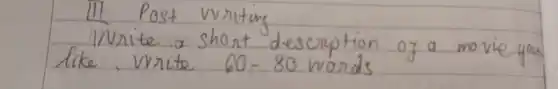 III Post writing
Write a short description of a movie you
like. Write 60-80 words